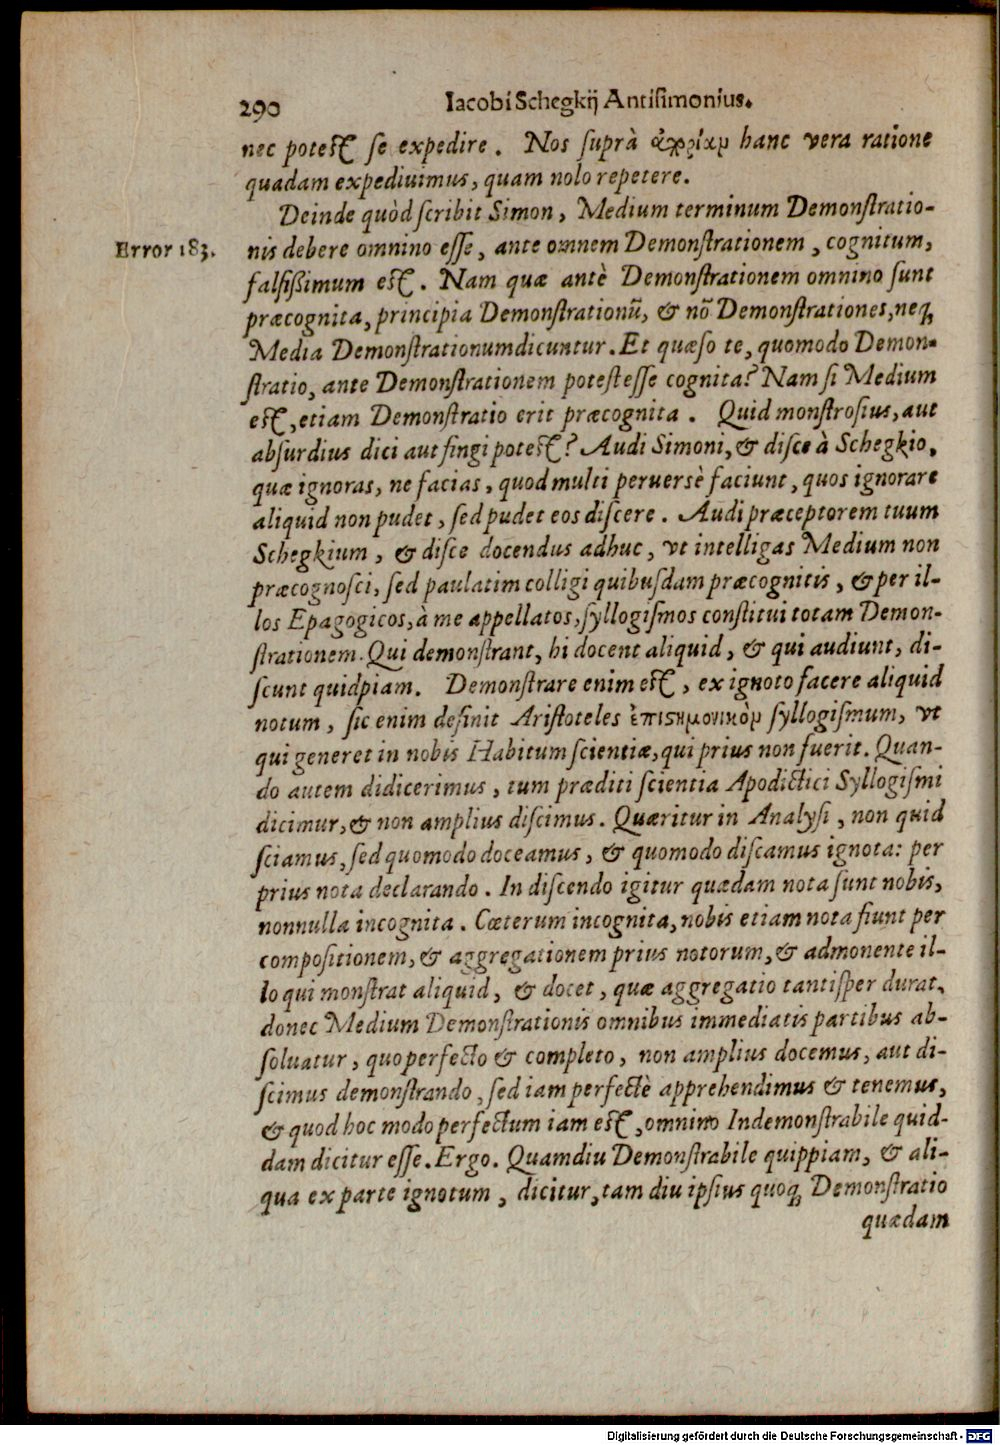 290 Iacobi Schegkij Antisimonius.
nec potest se expedire. Nos suprà hanc vera ratione
quadam expediuimus, quam nolo repetere.
Deinde quòd scribit Simon, Medium terminum Demonstratio-
Error 183. nis debere omnino esse, ante omnem Demonstrationem, cognitum,
falsißimum est. Nam quæ antè Demonstrationem omnino sunt
præcognita, principia Demonstrationū, & nō Demonstrationes, neq;
Media Demonstrationum dicuntur. Et quæso te, quomodo Demon-
stratio, ante Demonstrationem potest esse cognita? Nam si Medium
est, etiam Demonstratio erit præcognita. Quid monstrosius, aut
absurdius dici aut fingi potest? Audi Simoni, & disce à Schegkio,
quæ ignoras, ne facias, quod multi peruersè faciunt, quos ignorare
aliquid non pudet, sed pudet eos discere. Audi præceptorem tuum
Schegkium, & disce docendus adhuc, vt intelligas Medium non
præcognosci, sed paulatim colligi quibusdam præcognitis, & per il-
los Epagogicos, à me appellatos, syllogismos constitui totam Demon-
strationem. Qui demonstrant, hi docent aliquid, & qui audiunt, di-
scunt quidpiam. Demonstrare enim est, ex ignoto facere aliquid
notum, sic enim definit Aristoteles ἐπιστημονικὸν syllogismum, vt
qui generet in nobis Habitum scientiæ, qui prius non fuerit. Quan-
do autem didicerimus, tum præditi scientia Apodictici Syllogismi
dicimur, & non amplius discimus. Quæritur in Analysi, non quid
sciamus, sed quomodo doceamus, & quomodo discamus ignota: per
prius nota declarando. In discendo igitur quædam nota sunt nobis,
nonnulla incognita. Cæterum incognita, nobis etiam nota fiunt per
compositionem, & aggregationem prius notorum, & admonente il-
lo qui monstrat aliquid, & docet, quæ aggregatio tantisper durat,
donec Medium Demonstrationis omnibus immediatis partibus ab-
soluatur, quo perfecto & completo, non amplius docemus, aut di-
scimus demonstrando, sed iam perfectè apprehendimus & tenemus,
& quod hoc modo perfectum iam est, omnino Indemonstrabile quid-
dam dicitur esse. Ergo. Quamdiu Demonstrabile quippiam, & ali-
qua ex parte ignotum, dicitur, tam diu ipsius quoq; Demonstratio
quædam
Digitalisierung gefördert durch die Deutsche Forschungsgemeinschaft - DFG